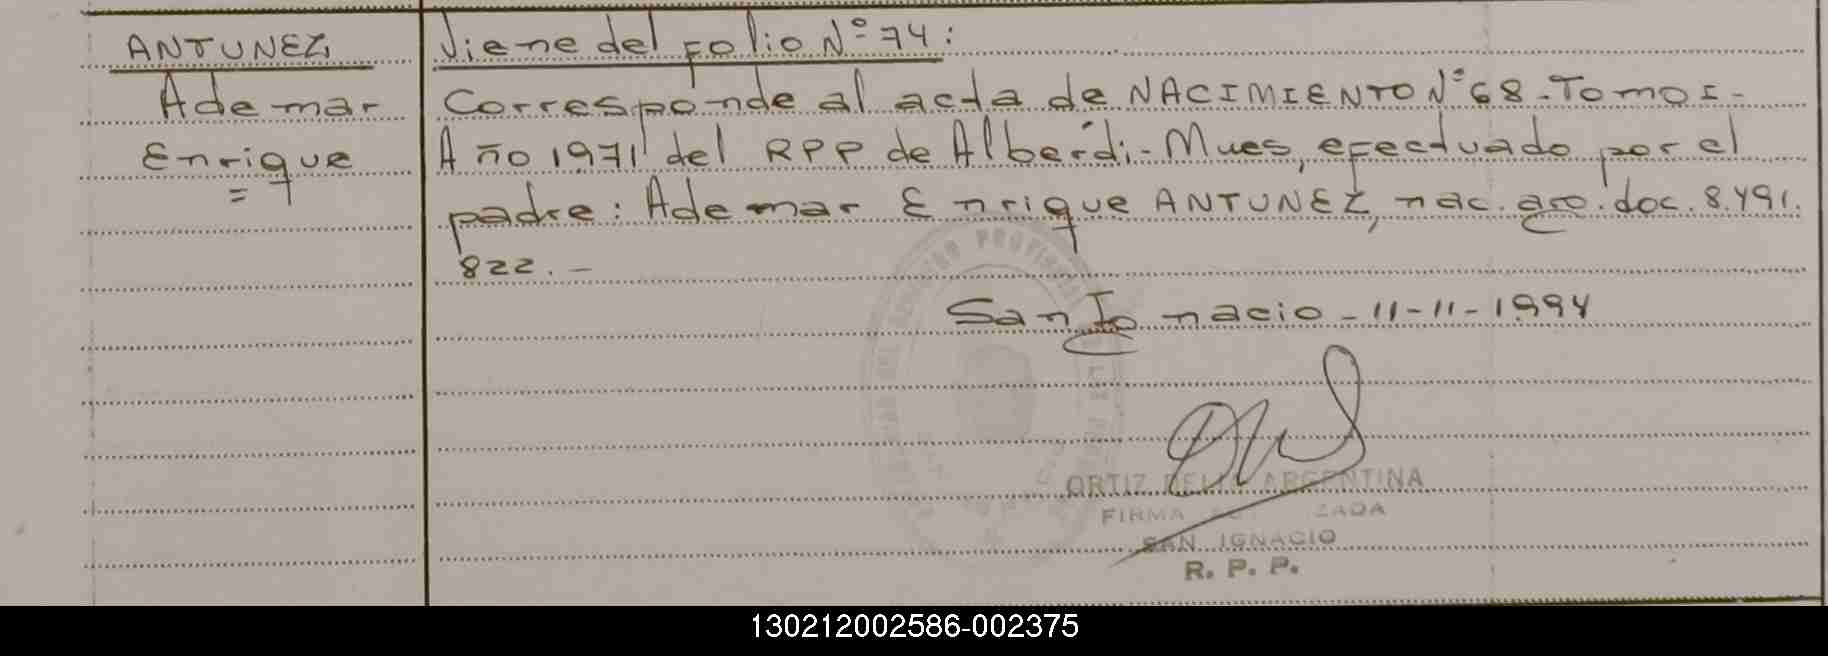 ANTUNEZ
Ademar
Enrique
=
Viene del folio N° 74:
Corresponde al acta de NACIMIENTO N° 68 - Tomo I -
Año 1971 del RPP de Alberdi - Mnes, efectuado por el
padre: Ademar Enrique ANTUNEZ, nac. arg. doc. 8.491.
822. -
San Ignacio - 11-11-1994
ORTIZ DELIA ARGENTINA
FIRMA
SAN IGNACIO
R. P. P.
130212002586-002375